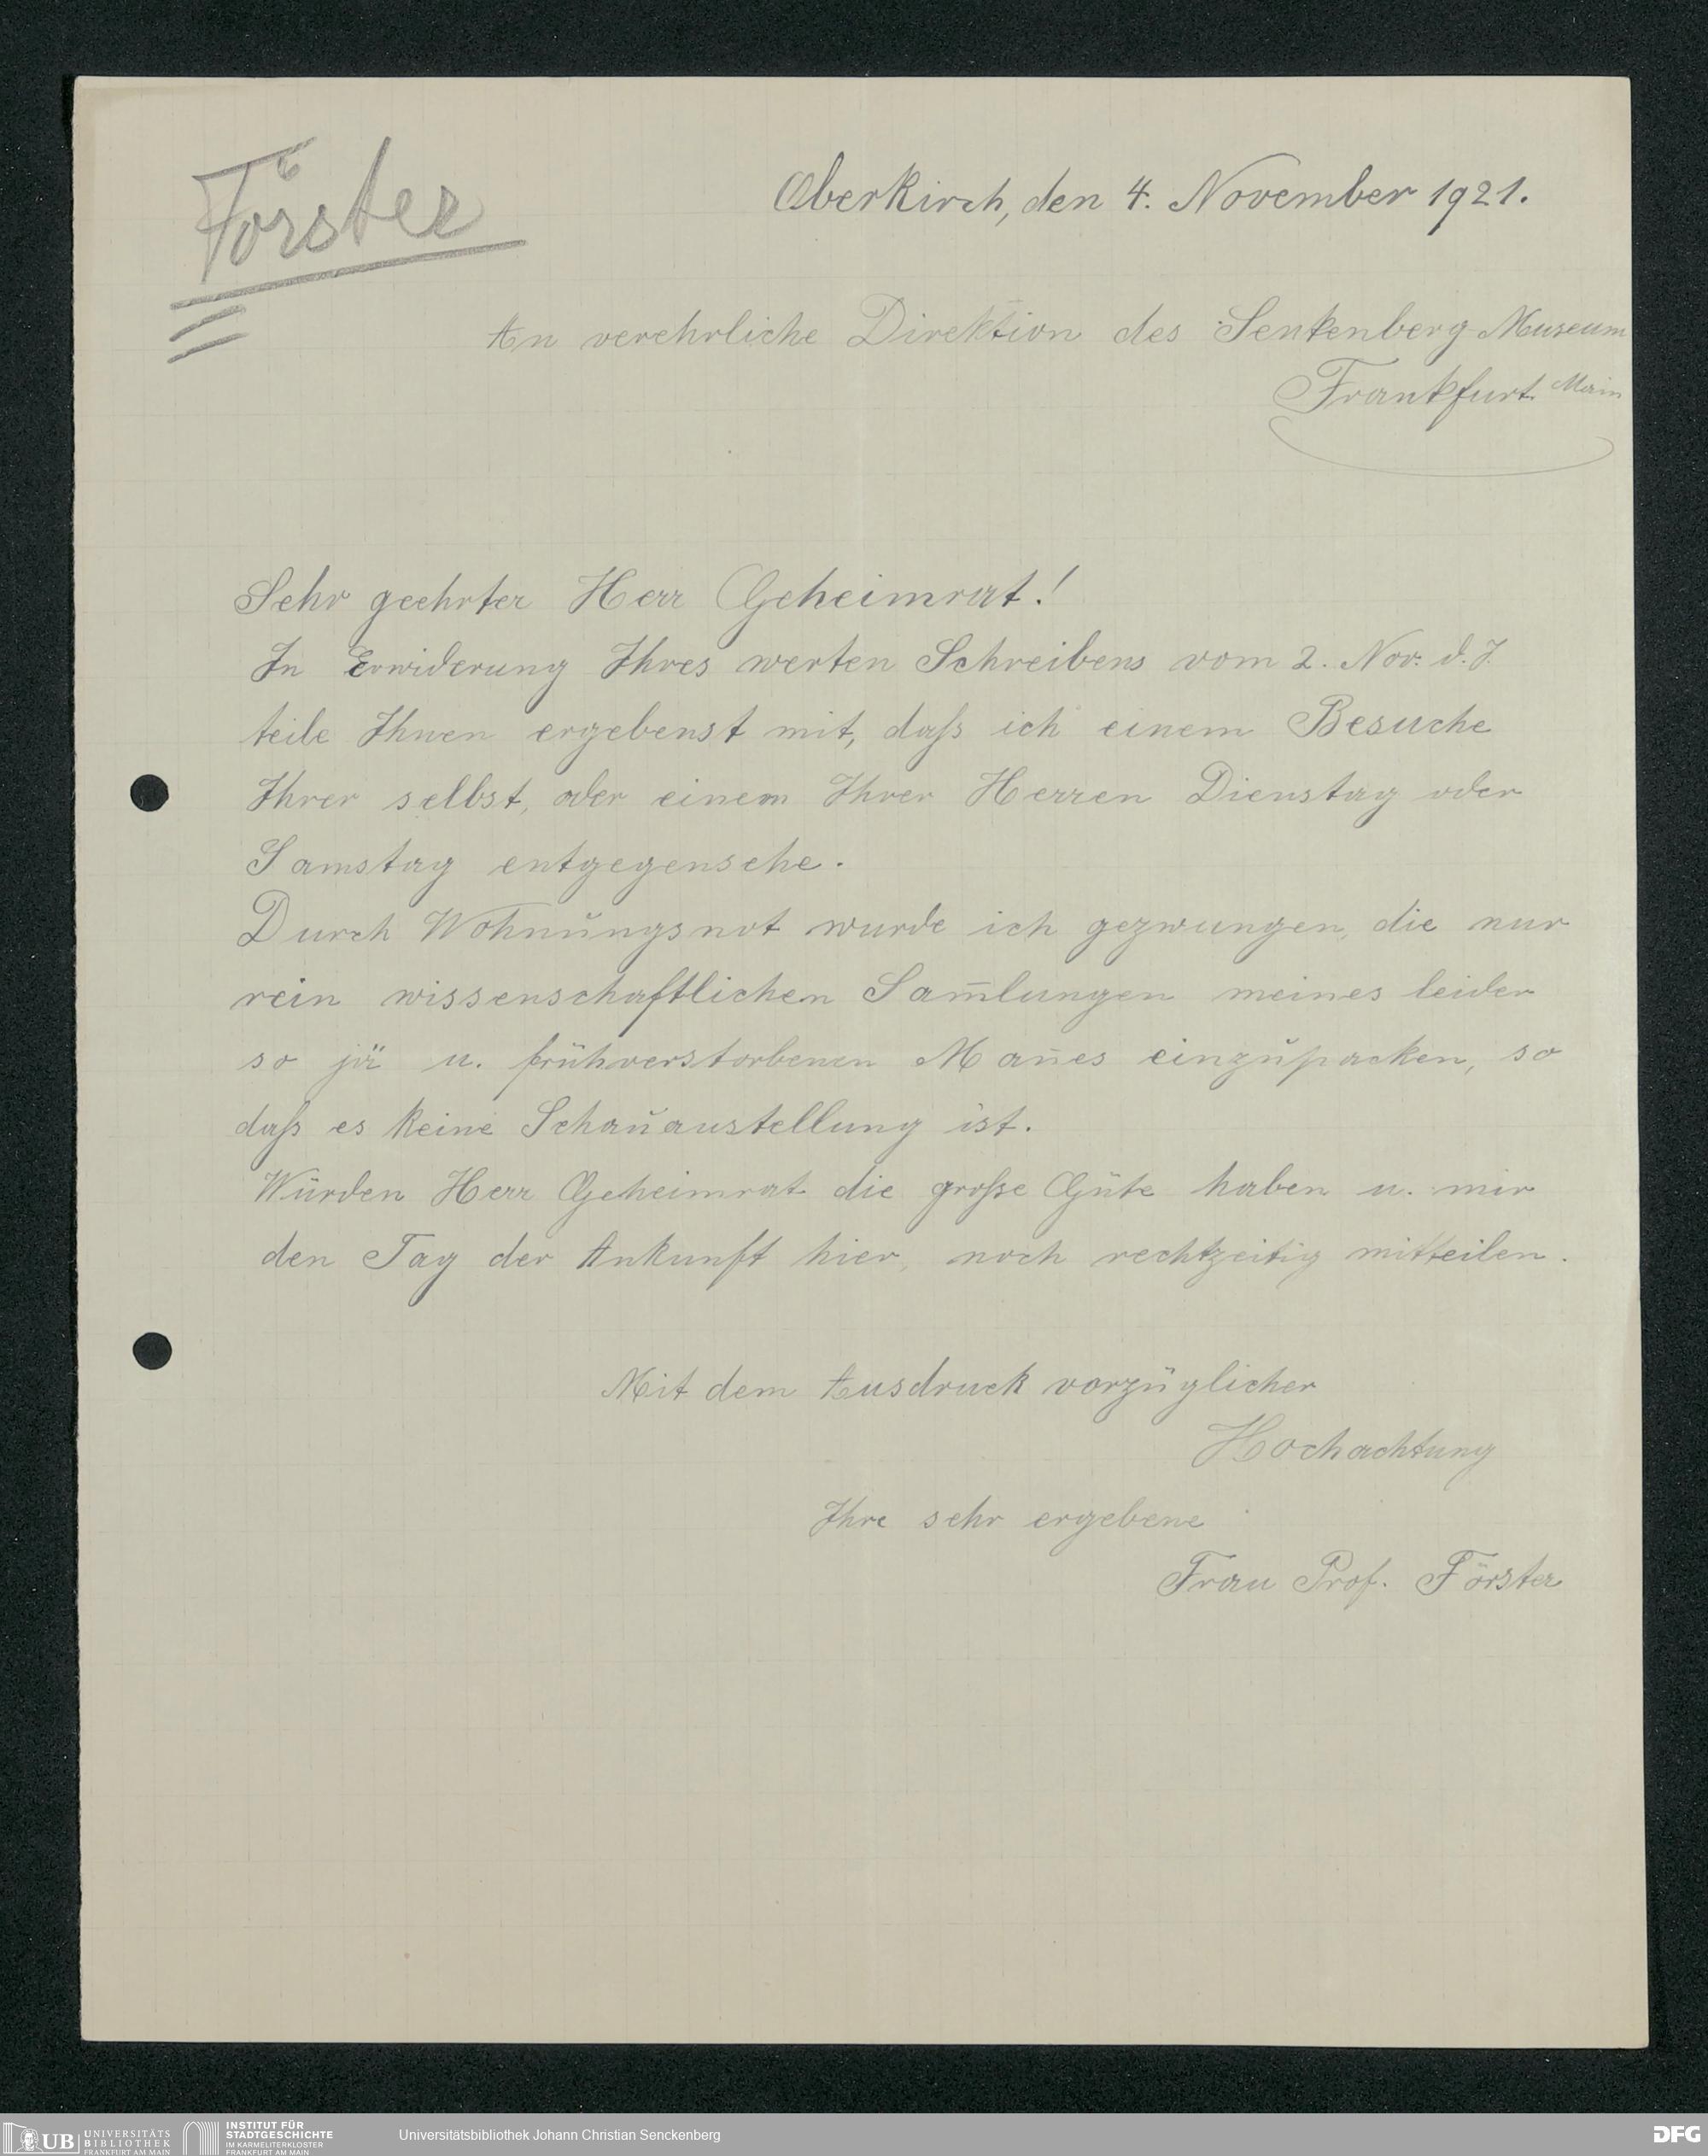 Förster
Oberkirch, den 4. November 1921.
An verehrliche Direktion des Senkenberg Museum
Frankfurt Main
Sehr geehrter Herr Geheimrat!
In Erwiderung Ihres werten Schreibens vom 2. Nov. d. J.
teile Ihnen ergebenst mit, daſs ich einem Besuche
Ihrer selbst, oder einem Ihrer Herren Dienstag oder
Samstag entgegensehe.
Durch Wohnŭngsnot wurde ich gezwungen, die nur
rein wissenschaftlichen Sam̄lungen meines leider
so jä u. frühverstorbenen Man̄es einzŭpacken, so
daſs es keine Schaŭaustellung ist.
Würden Herr Geheimrat die groſse Güte haben u. mir
den Tag der Ankunft hier, noch rechtzeitig mitteilen.
Mit dem Ausdruck vorzüglicher
Hochachtung
Ihre sehr ergebene
Frau Prof. Förster
UB UNIVERSITÄTS
BIBLIOTHEK
FRANKFURT AM MAIN
INSTITUT FÜR
STADTGESCHICHTE
IM KARMELITERKLOSTER
FRANKFURT AM MAIN
Universitätsbibliothek Johann Christian Senckenberg
DFG